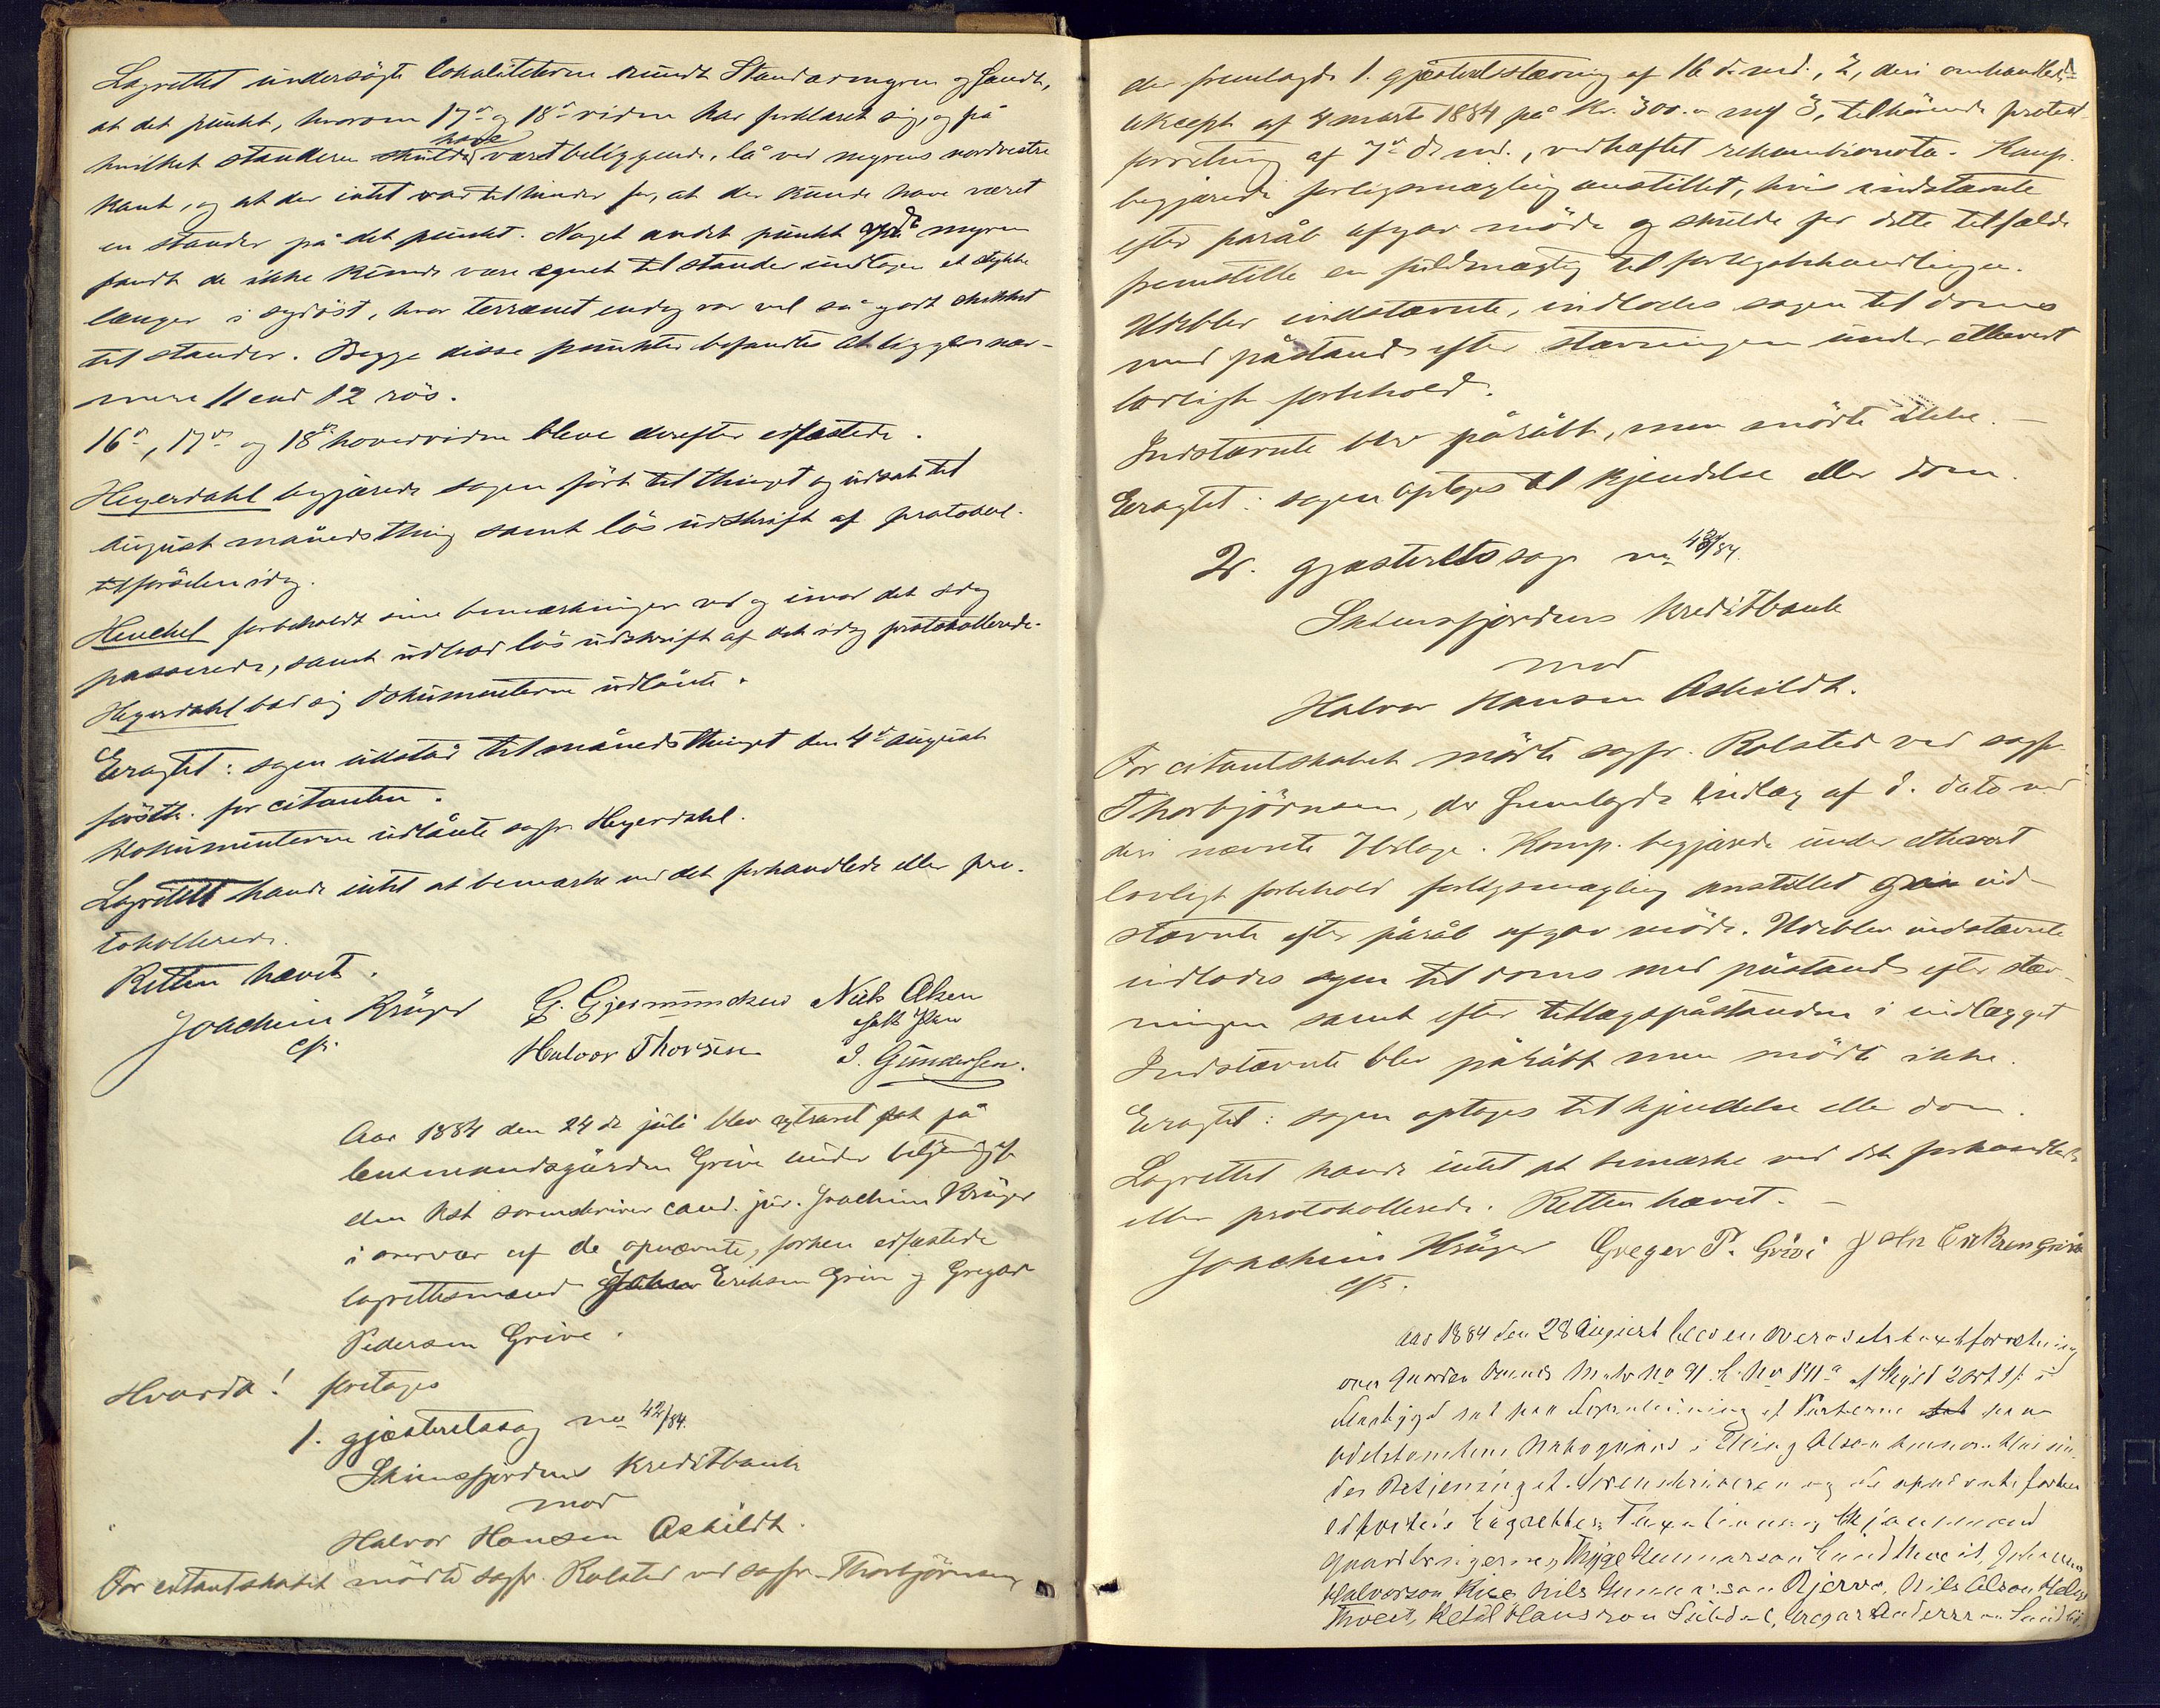 Lagrettet undersögte lokaliteterne rundt Standarmyren og fandt,
at det punkt, hvorom 17de og 18de vidne har forklaret sig, og på
hvilket standeren skulde have været beliggende, lå ved myrens nordvestre
kant, og at der intet var til hinder for, at der kunde have været
en stander på det punkt. Noget andet punkt på myren
fandt de ikke kunde være egnet til stander undtagen et stykke
længer i sydöst, hvor terrænet endog var vel så godt skikket
til stander. Begge disse punkter befandtes at ligge nær-
mere 11 end 12 rös.
16de, 17de og 18de hovedvidne bleve derefter edfæstede.
Heyerdahl begjærede sagen fört til thinget og udsat til
august månedsthing samt lös udskrift af protokol-
tilförselen idag.
Henchel forbeholdt sine bemærkninger ved og imod det idag
passerede, samt udbad lös udskrift af det idag protokollerede.
Heyerdahl bad sig dokumenterne udlånte.
Eragtet: sagen udstår til månedsthinget den 4de august
förstk. for citanten.
Dokumenterne udlånte sagfr. Heyerdahl.
Lagrettet havde intet at bemærke ved det forhandlede eller pro-
tokollerede.
Retten hævet.
Joachim Krüger G. Gjermundsen Niels Olsen
cst.
Halvor Thorsen J. Gundersen.
Aar 1884 den 24de juli blev extraret sat på
lensmandsgården Grive under betjening af
den kst sorenskriver cand. jur. Joachim Krüger
i overvær af de opnævnte, forhen edfæstede
lagrettesmænd John Eriksen Grive og Gregar
Pedersen Grive.
Hvorda! foretages
1. gjæsteretssag no 42/84.
Skiensfjordens kreditbank
mod
Halvor Hansen Askildt.
For citantskabet mödte sagfr. Rolsted ved sagfr. Thorbjörnsen,
der fremlagde 1. gjæsteretsstævning af 16 d. md., 2, deri omhandlede
akcept af 4 marts 1884 på Kr. 300.- og 3, tilhörende protest
forretning af 7de d. md., vedhæftet rekambionota. Komp.
begjærede forligsmægling anstillet, hvis indstævnte
efter påråb afgav möde og skulde for dette tilfælde
fremstille en fuldmægtig til forligsbehandlingen.
Udeblev indstævnte, indlodes sagen til doms
med påstand efter stævningen under ethvert
lovligt forbehold.
Indstævnte blev påråbt, men mödte ikke. -
Eragtet: sagen optages til kjendelse eller dom.
2. gjæsteretssag no 43/84.
Skiensfjordens kreditbank
mod
Halvor Hansen Askildt.
For citantskabet mödte sagfr. Rolsted ved sagfr.
Thorbjörnsen, der fremlagde indlæg af d. dato med
deri nævnte bilage. Komp. begjærede under ethvert
lovligt forbehold forligsmægling anstillet ind-
stævnte efter påråb afgav möde. Udeblev indstævnte
indlodes sagen til doms med påstand efter stæv-
ningen samt efter tillægspåstanden i indlægget
Indstævnte blev påråbt men mödte ikke.
Eragtet: sagen optages til kjendelse eller dom.
Lagrettet havde intet at bemærke ved det forhandlede
eller protokollerede. Retten hævet. -
Joachim Krüger Greger P. Grivi John Eriksen Grive
cst.
Aar 1884 den 28 August blev en Overodelstaxtforretning
over Gaarden Matr No 91 L. No af Skyld 2 Ort i
sat paa af Parterne sat paa
i Olsen
der Betjening af Sorenskriveren og de opnævnte forhen
edfæstede Lagrettes, Taxations og Skjønsmænd
Gaardbrugerne Gunnarson Johannes
Halvorson Nils Gunnarson Nils Olson
Ketil Hansson Gregar Anderson